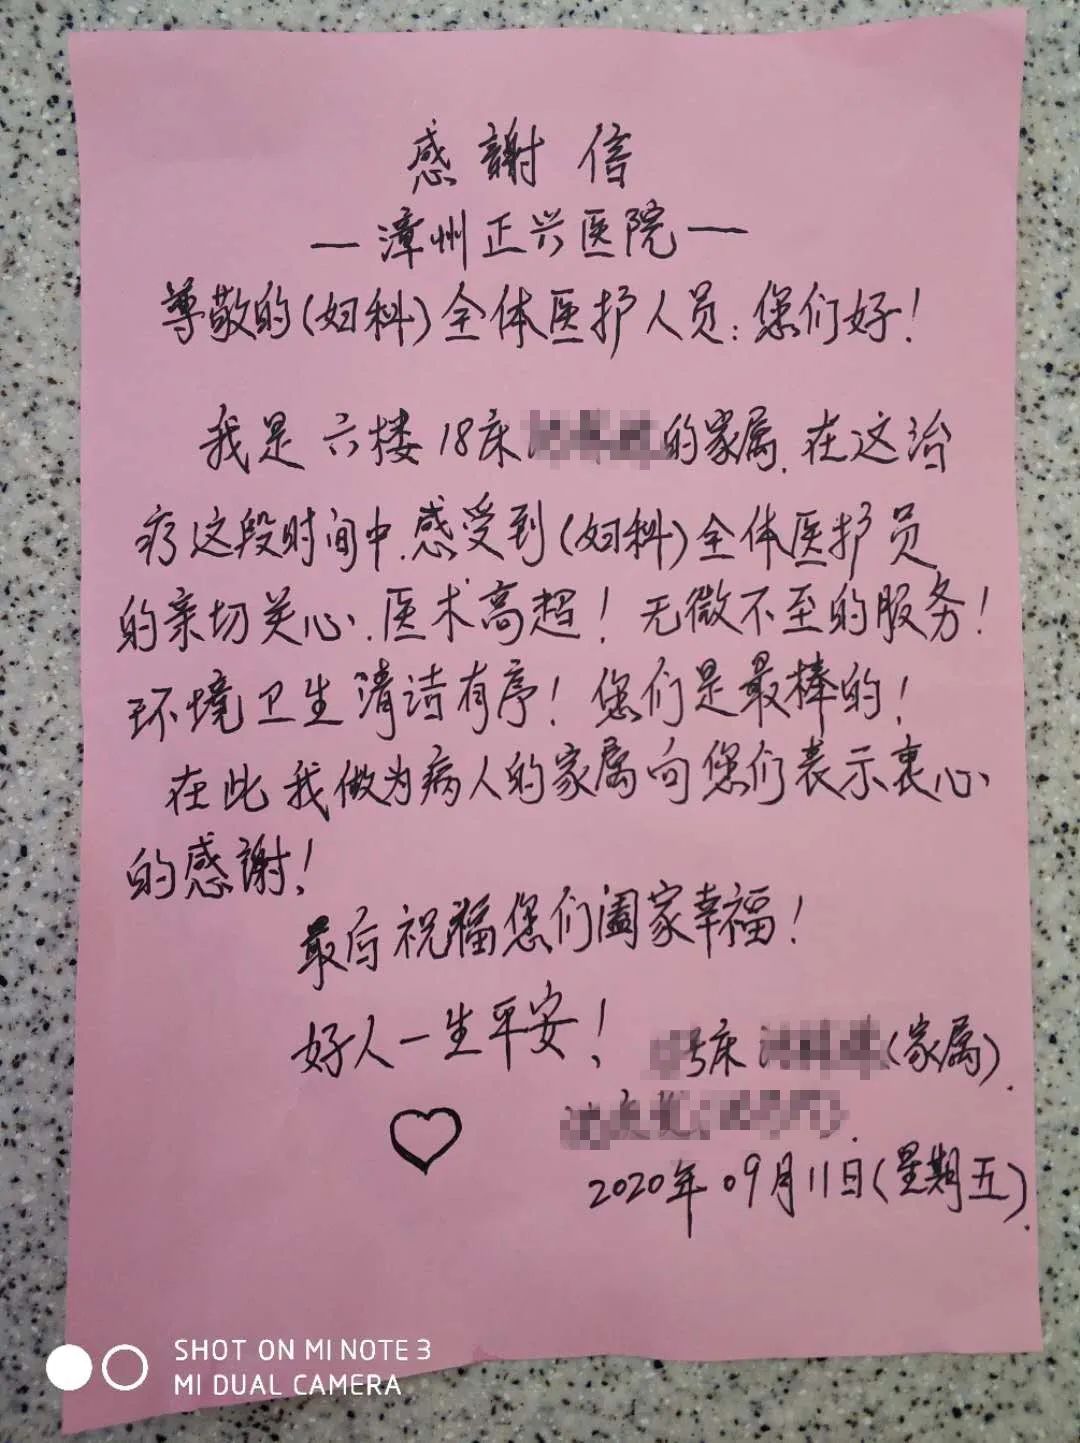 感謝信
—漳州正兴医院—
尊敬的(妇科)全体医护人员:您们好!
我是六楼18床的家属.在这治
疗这段时间中.感受到(妇科)全体医护员
的亲切关心.医术高超!无微不至的服务!
环境卫生清洁有序!您们是最棒的!
在此我做为病人的家属向您们表示衷心
的感謝!
最后祝福您们阖家幸福!
好人一生平安!
号床(家属).
2020年09月11日(星期五).
SHOT ON MI NOTE 3
MI DUAL CAMERA